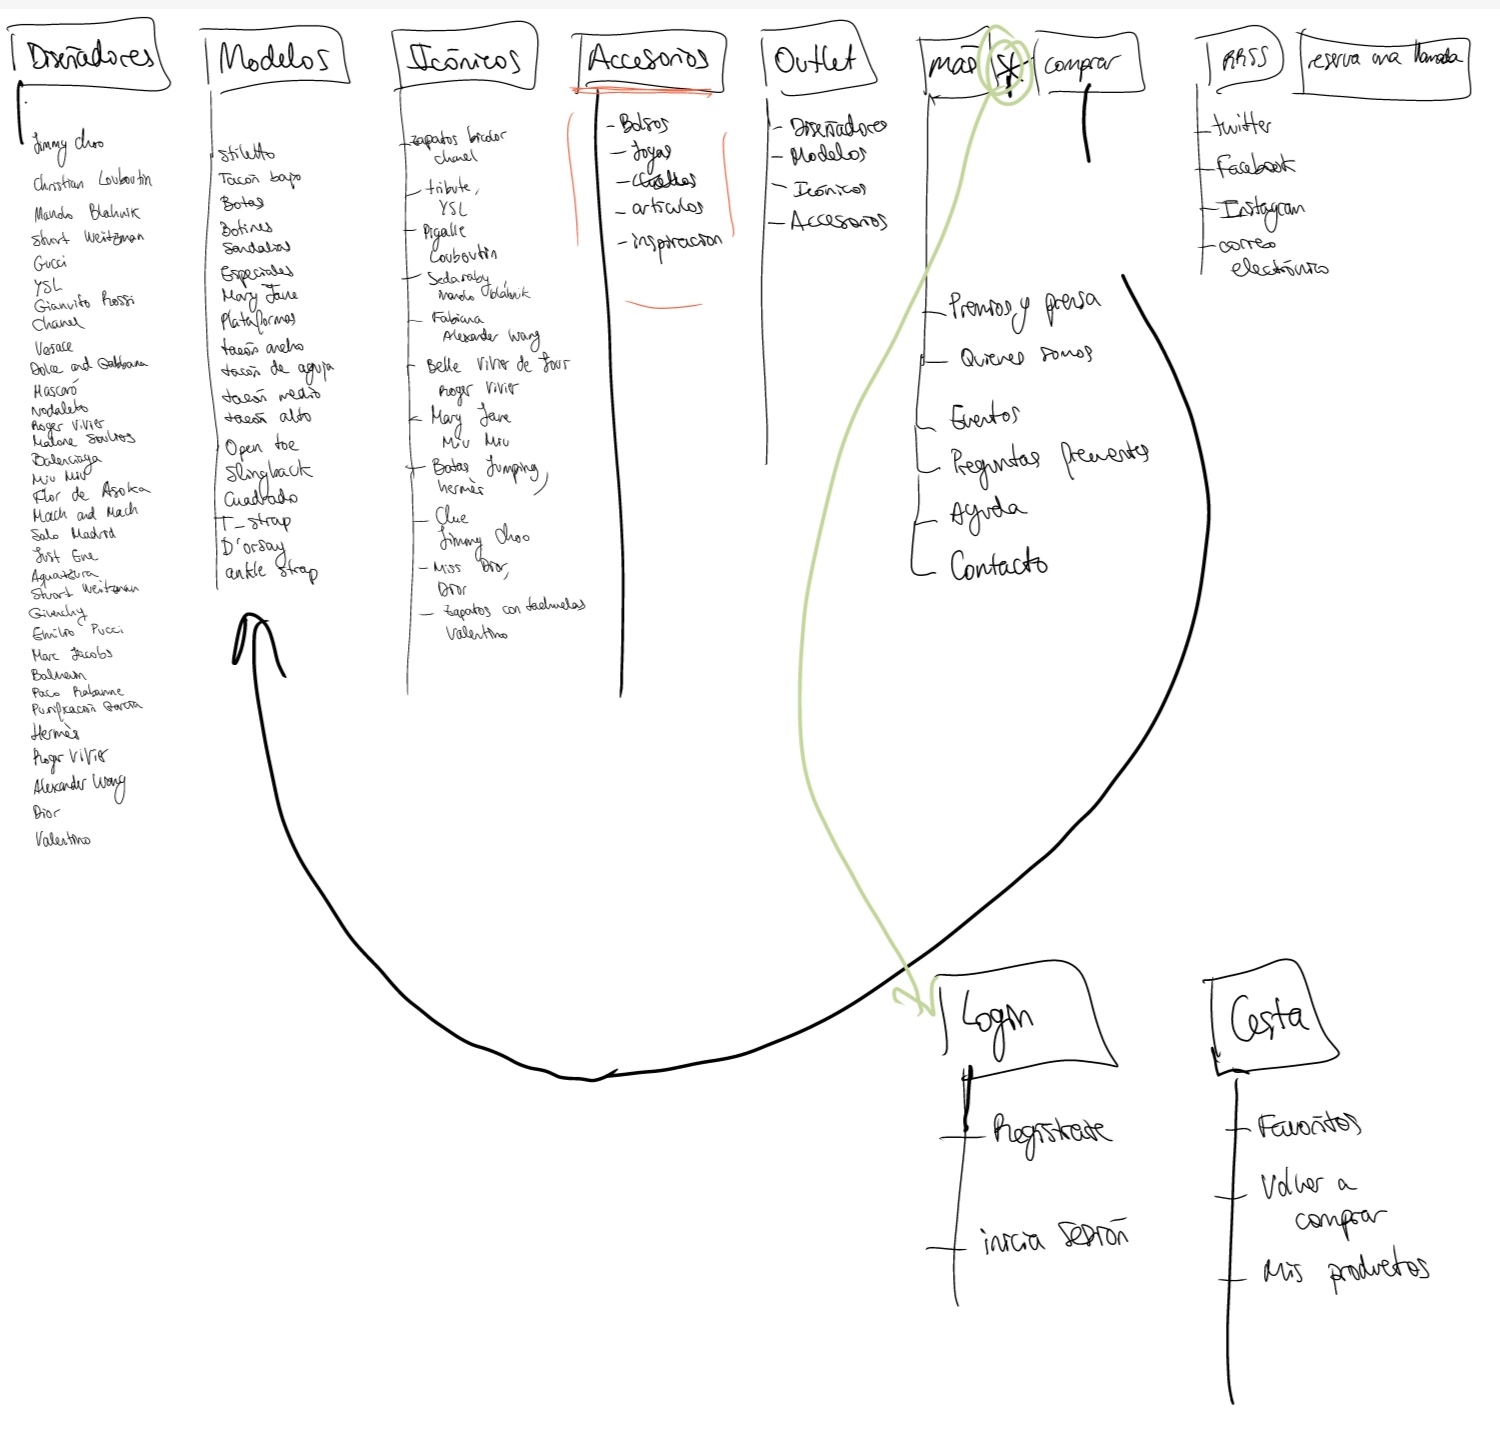 Diseñadores
Jimmy Choo
Christian Louboutin
Manolo Blahnik
Stuart Weitzman
Gucci
YSL
Gianvito Rossi
Chanel
Versace
Dolce and Gabbana
Mascaró
Nodaleto
Roger Vivier
Malone Souliers
Balenciaga
Miu Miu
Flor de Asoka
Mach and Mach
Salo Madrid
Just Ene
Aquazzura
Stuart Weitzman
Givenchy
Emilio Pucci
Marc Jacobs
Balmain
Paco Rabanne
Purificación García
Hermès
Roger Vivier
Alexander Wang
Dior
Valentino
Modelos
Stiletto
Tacón bajo
Botas
Botines
Sandalias
Especiales
Mary Jane
Plataformas
tacón ancho
tacón de aguja
tacón medio
tacón alto
Open toe
Slingback
Cuadrado
T-strap
D'orsay
ankle strap
Icónicos
zapatos bicolor
chanel
tribute,
YSL
Pigalle
Louboutin
Sedaraby
Manolo Blahnik
Fabiana
Alexander Wang
Belle Vivier de Jour
Roger Vivier
Mary Jane
Miu Miu
Botas Jumping,
hermès
Clue
Jimmy Choo
Miss Dior,
Dior
zapatos con tachuelas
Valentino
Accesorios
- Bolsos
- Joyas
- artículos
- inspiración
Outlet
- Diseñadores
- Modelos
- Icónicos
- Accesorios
más
Premios y prensa
Quienes somos
Eventos
Preguntas frecuentes
Ayuda
Contacto
comprar
RRSS
twitter
Facebook
Instagram
correo
electrónico
reserva una llamada
Login
Regístrate
inicia sesión
Cesta
Favoritos
Volver a
comprar
Mis productos